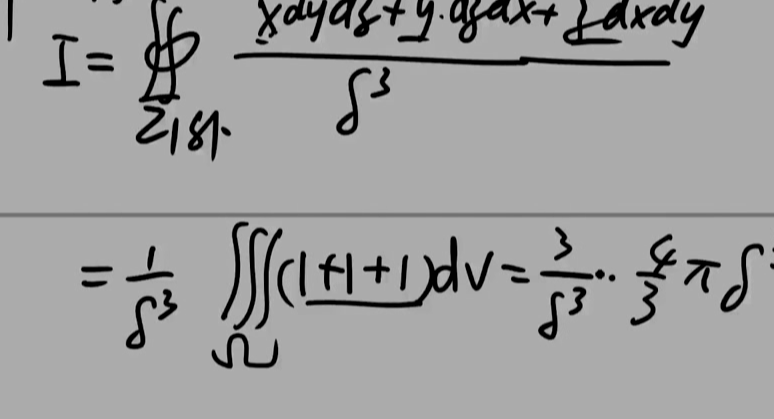 I = ∯_{Σ₁外} (xdydz + y·dzdx + zdxdy) / δ³
= 1/δ³ ∭_Ω (1+1+1)dV = 3/δ³ ·· 4/3 πδ³